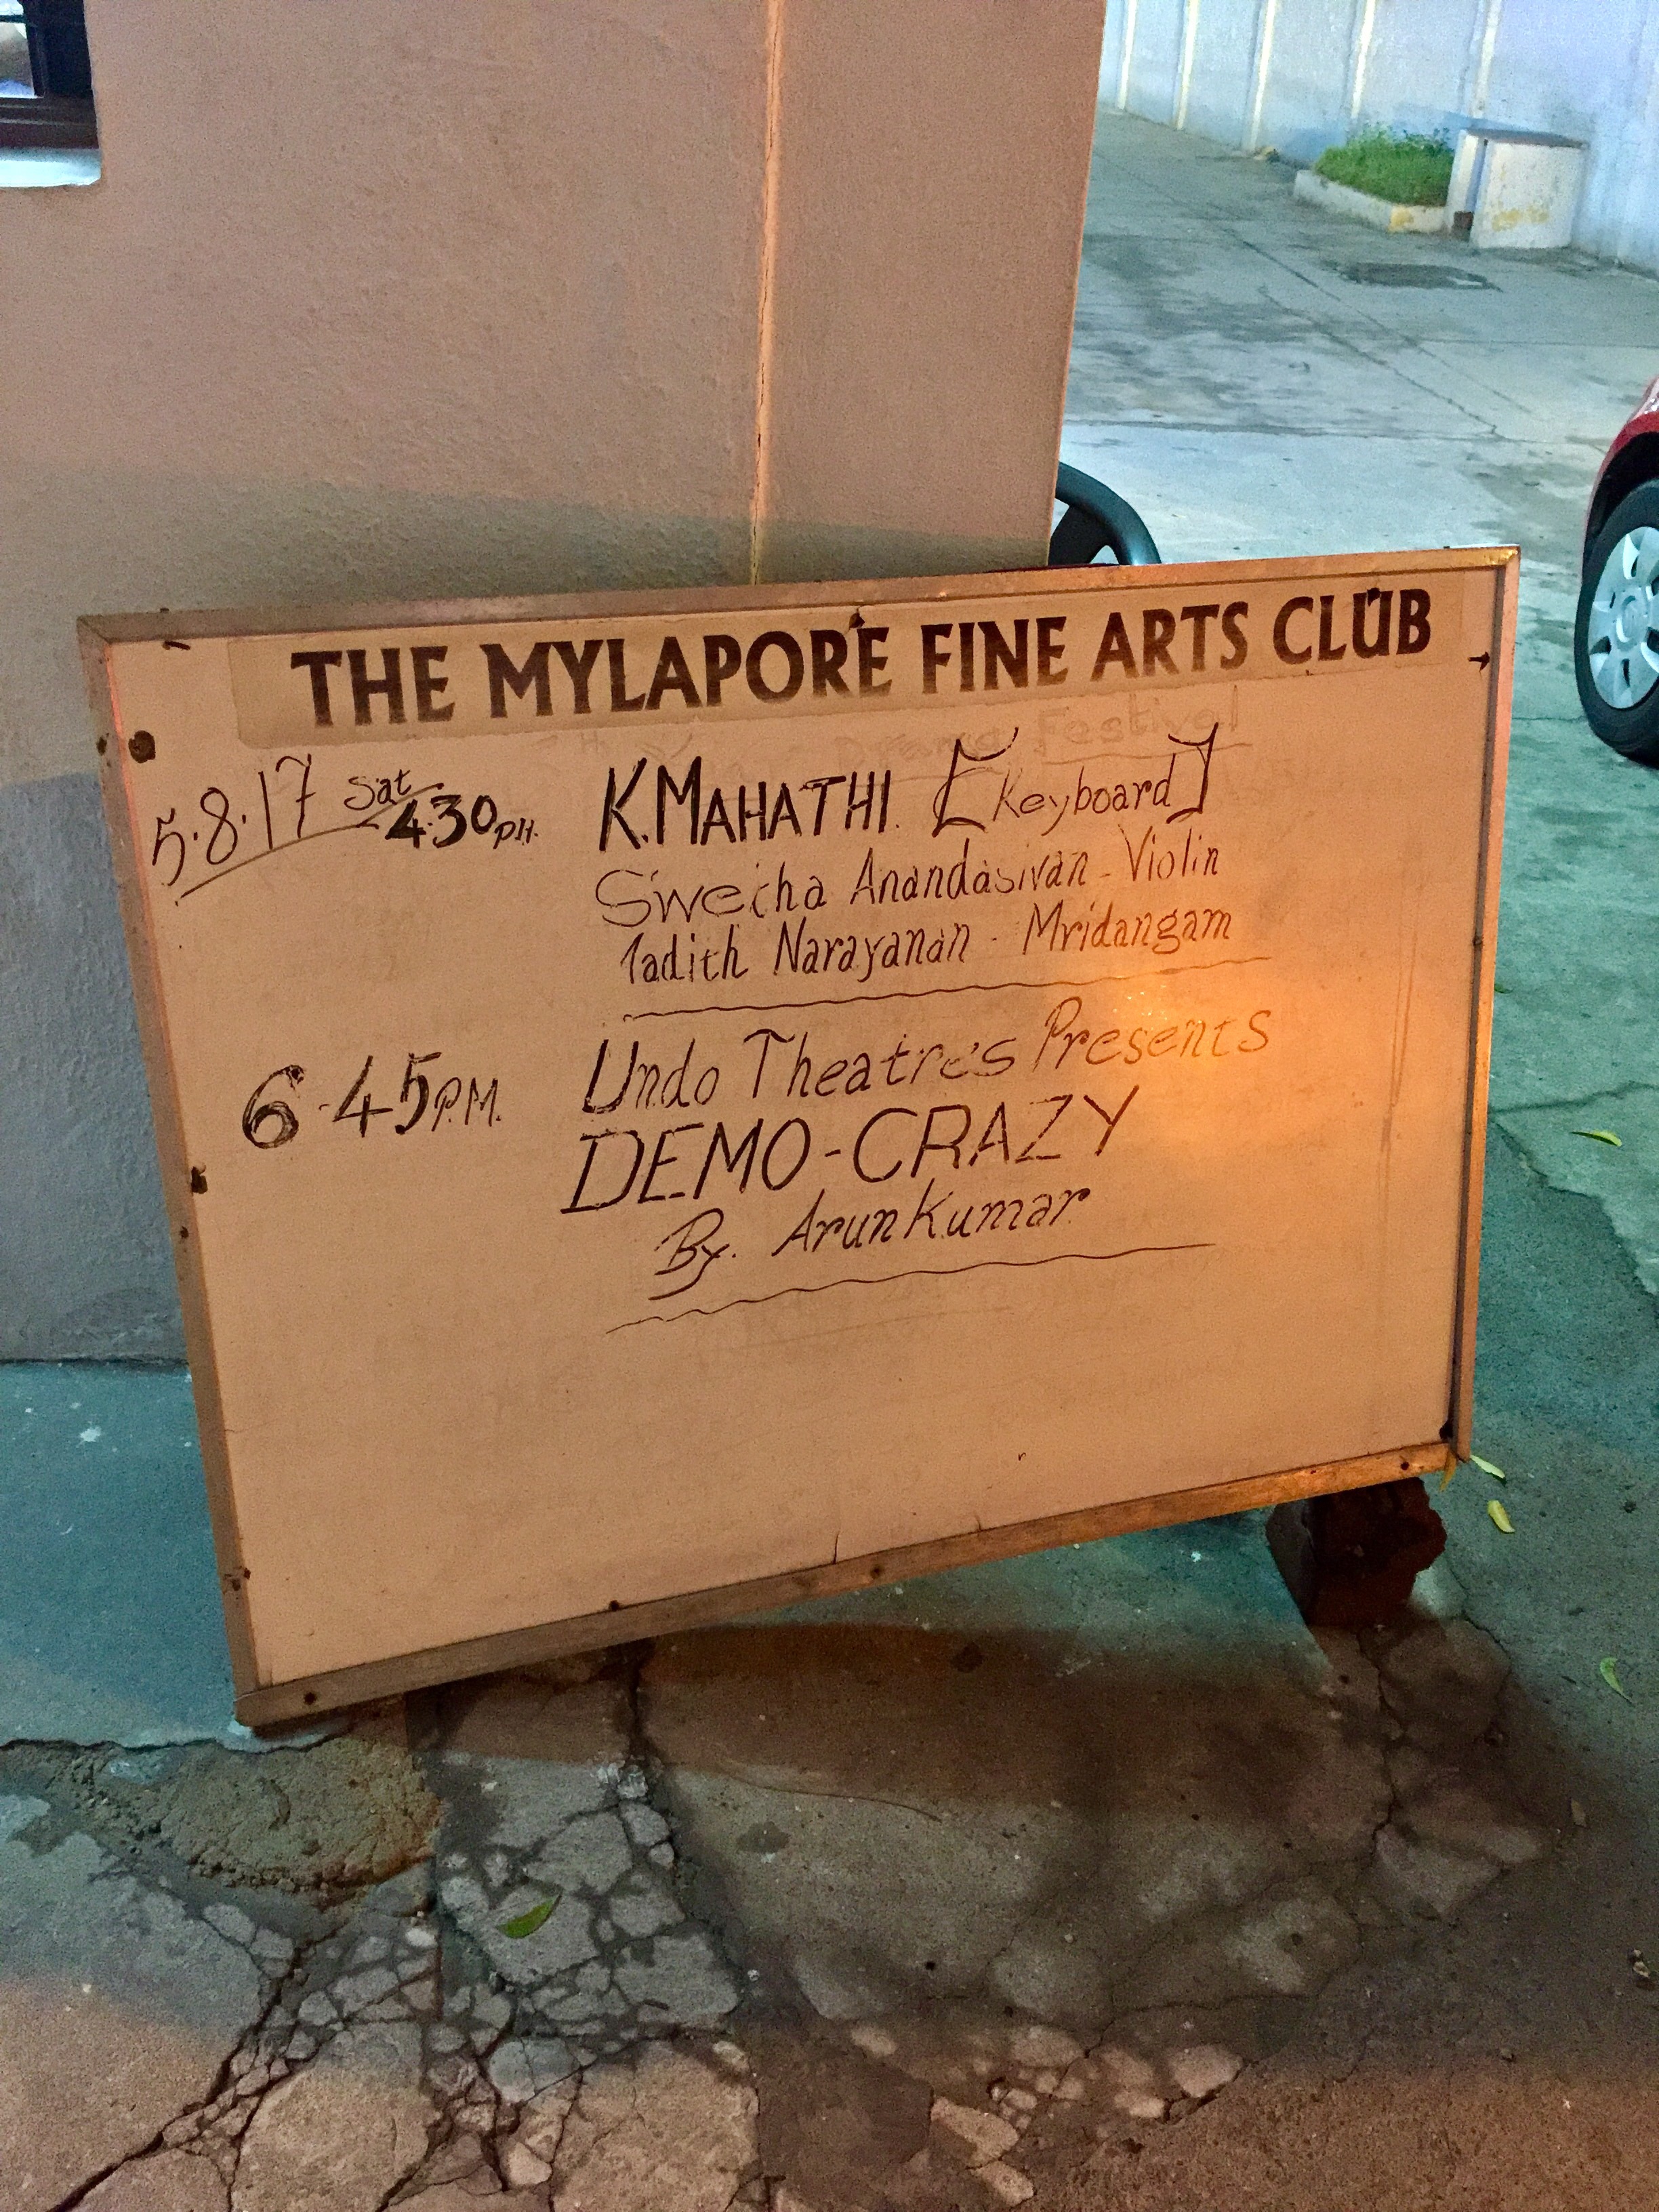 THE MYLAPORE FINE ARTS CLUB
Drama Festival
5.8.17 Sat 4.30 PM. K. MAHATHI. [Keyboard]
Swecha Anandasivan - Violin
Narayanan - Mridangam
6-45 P.M. Undo Theatre's Presents
DEMO-CRAZY
By. ArunKumar